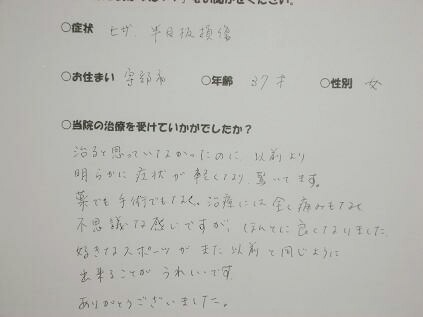 お聞かせください。
○症状 ヒザ、半月板損傷
○お住まい 宇部市 ○年齢 37才 ○性別 女
○当院の治療を受けていかがでしたか？
治ると思っていなかったのに、以前より
明らかに症状が軽くなり、驚いてます。
薬でも手術でもなく、治療には全く痛みもなく
不思議な感じですが、ほんとに良くなりました。
好きなスポーツがまた以前と同じように
出来ることがうれしいです。
ありがとうございました。